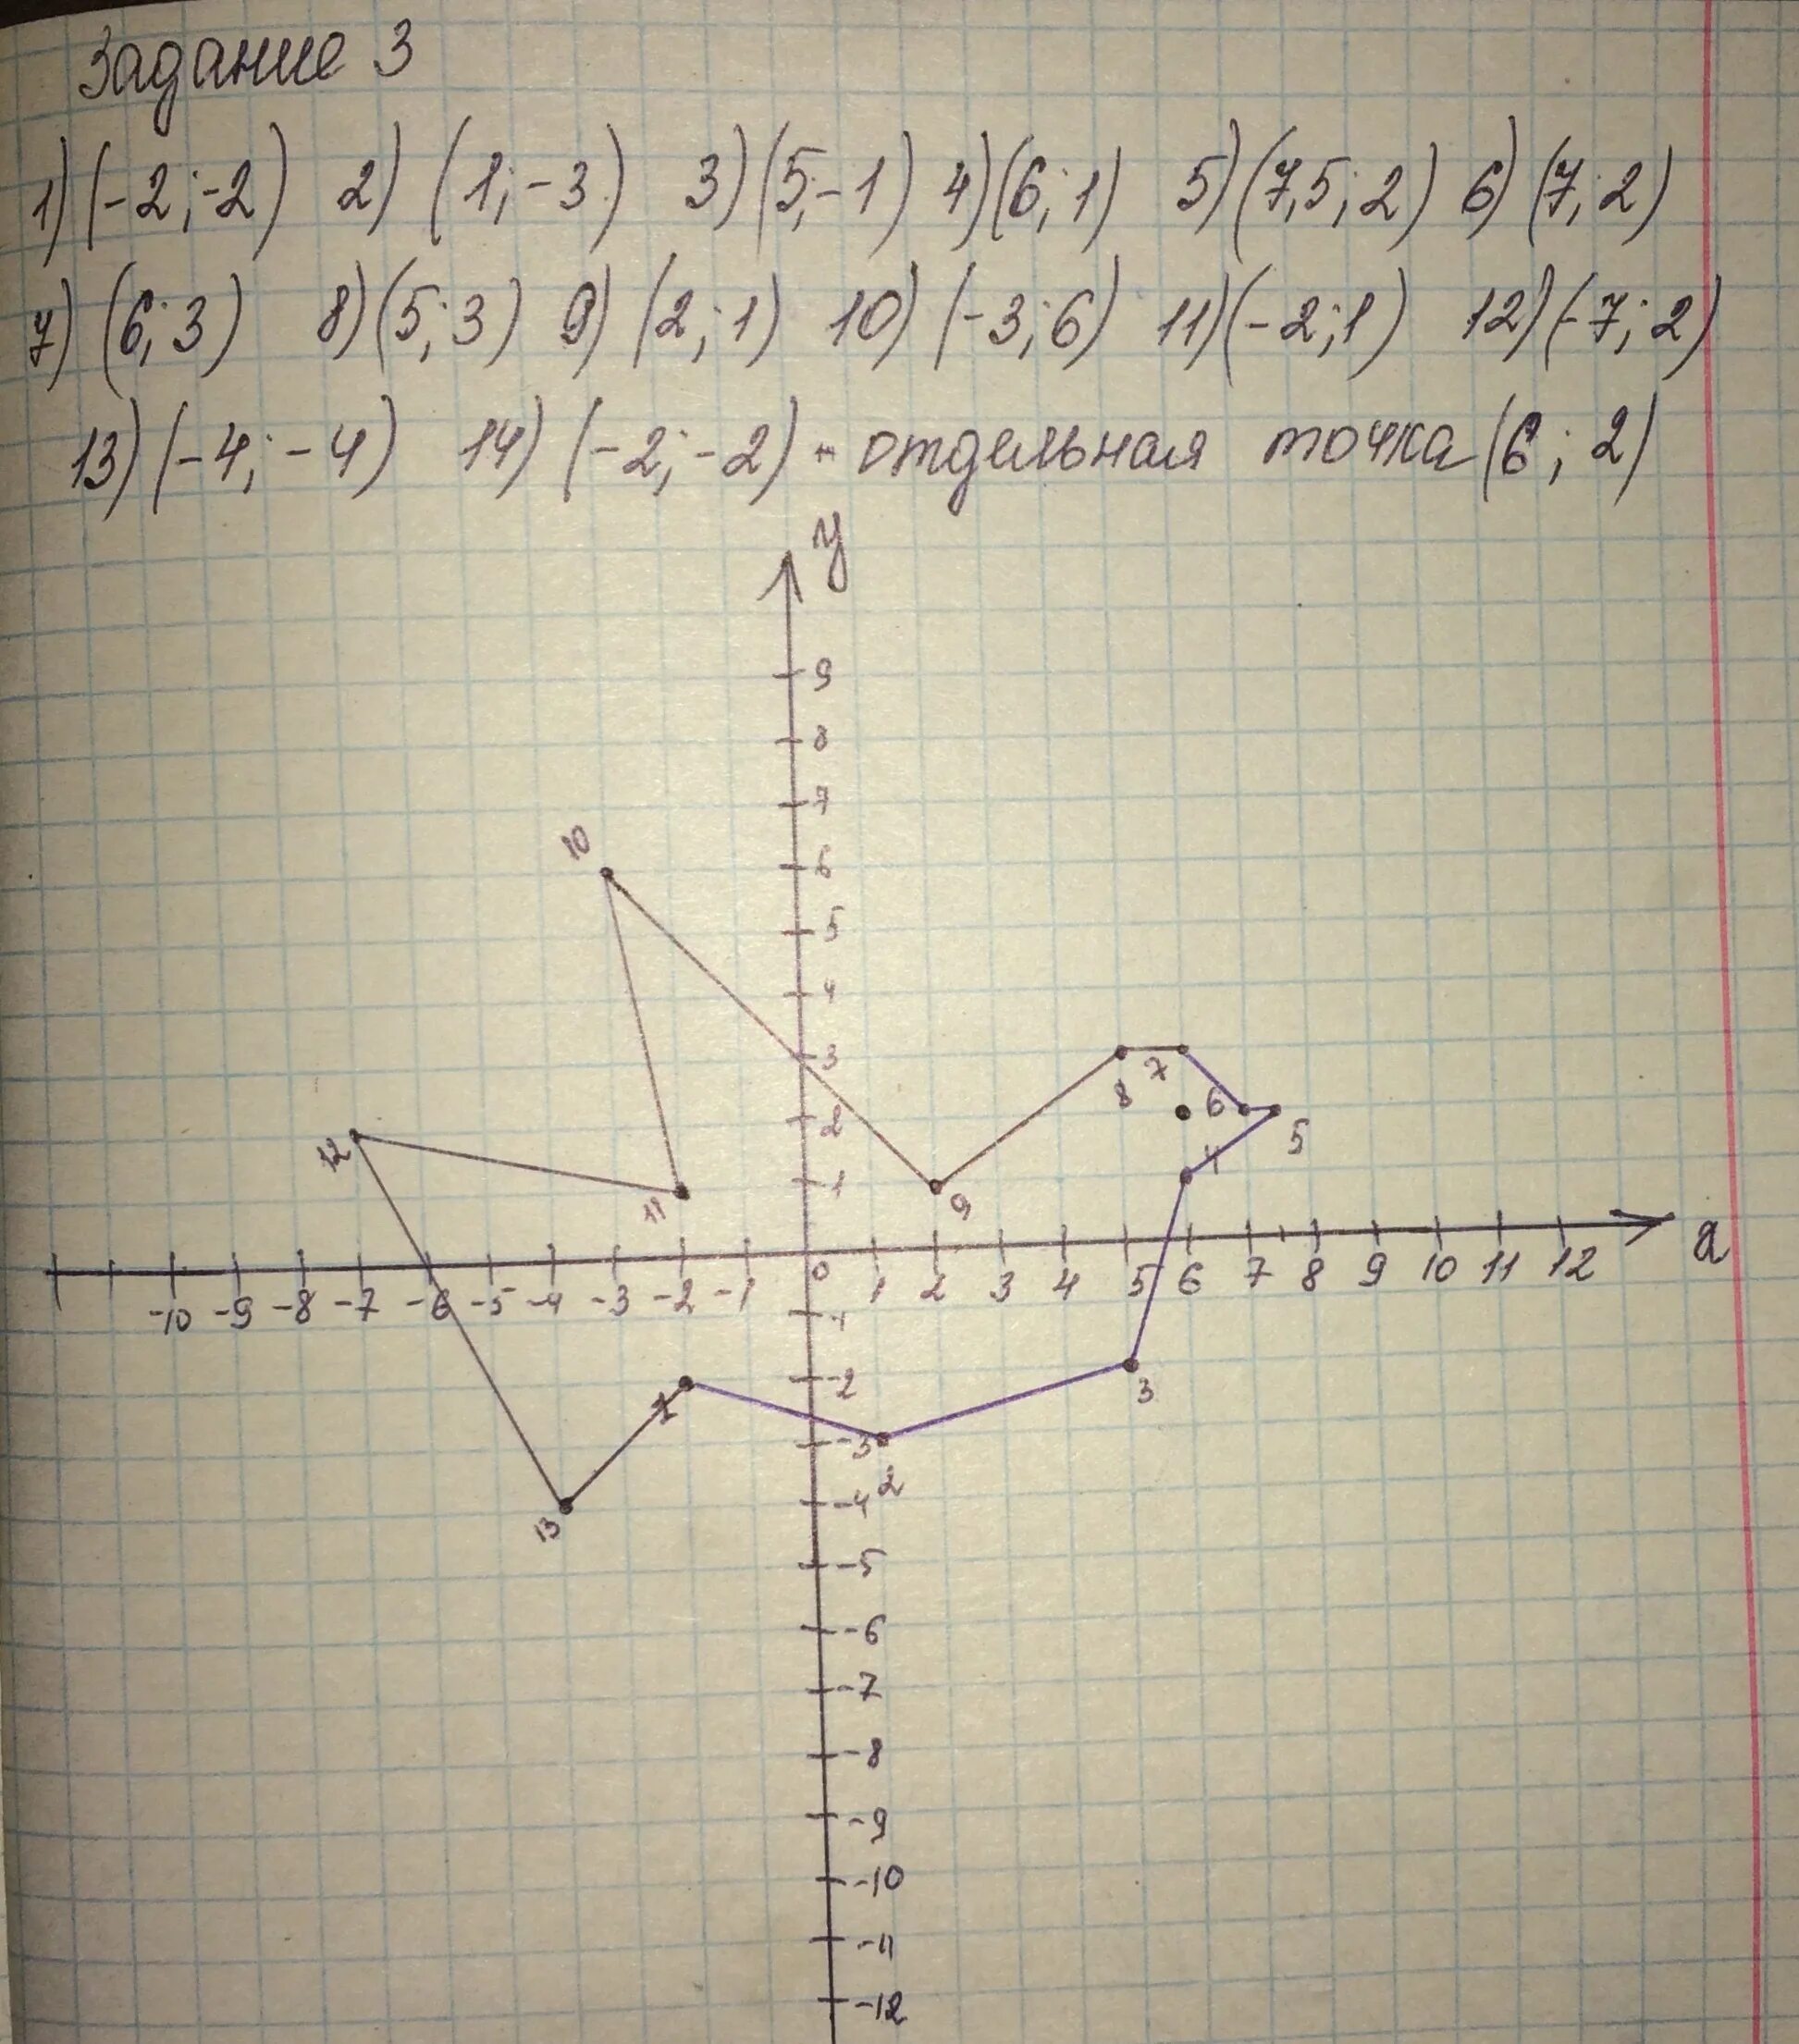 Задание 3
1) (-2; -2) 2) (1; -3) 3) (5; -1) 4) (6; 1) 5) (7,5; 2) 6) (7; 2)
7) (6; 3) 8) (5; 3) 9) (2; 1) 10) (-3; 6) 11) (-2; 1) 12) (-7; 2)
13) (-4; -4) 14) (-2; -2) - отдельная точка (6; 2)
у
9
8
7
10
6
5
4
3
7
8
6
2
5
12
4
1
11
9
х
0 1 2 3 4 5 6 7 8 9 10 11 12
-10 -9 -8 -7 -6 -5 -4 -3 -2 -1
-1
-2
3
1
-3
2
-4
13
-5
-6
-7
-8
-9
-10
-11
-12